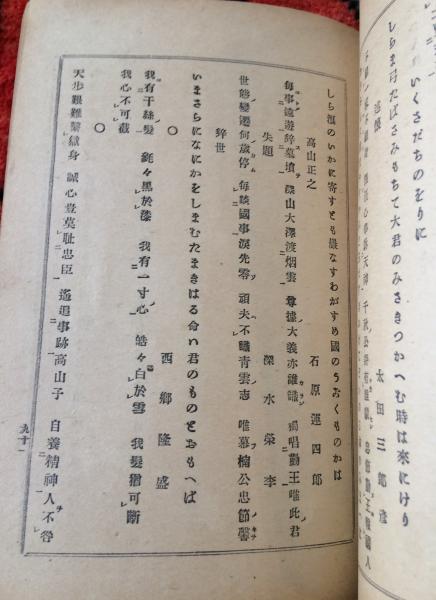 いくさだちのをりに
しらま弓たばさみもちて大君のみさきつかへむ時は來にけり
述懷
太田三郎彦
しら濤のいかに寄すとも巖なすわがすめ國のうごくものかは
高山正之
石原運四郎
每事遠遊辭墓墳 深山大澤渡烟雲 尊攘大義亦誰識 獨唱勤王唯此君
失題
深水榮李
世態變遷何歲停 每談國事淚先零 頑夫不識靑雲志 唯慕楠公忠節馨
辭世
いまさらになにかをしまむたまきはる命い君のものとおもへば
〇
西鄕隆盛
我有千絲髮 毿々黑於漆 我有一寸心 皓々白於雪 我髮猶可斷
我心不可截
〇
天步艱難繫獄身 誠心豈莫耻忠臣 遙追事跡高山子 自養精神人不咎
九十一